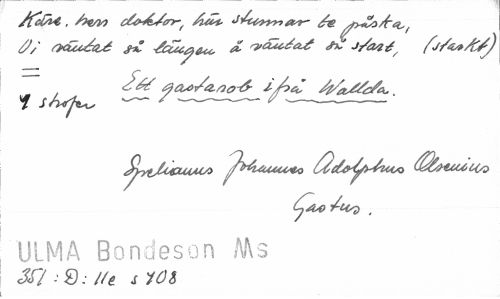 Käre. herr doktor, hür stunnar te påska,
Vi väntat så längen å väntat så start, (starkt)
=
7 strofer Ett gastasob ifrå Wallda.
Johannes Adolphus Olsenius
Gastus.
ULMA Bondeson Ms
351 : D: 11e s 708